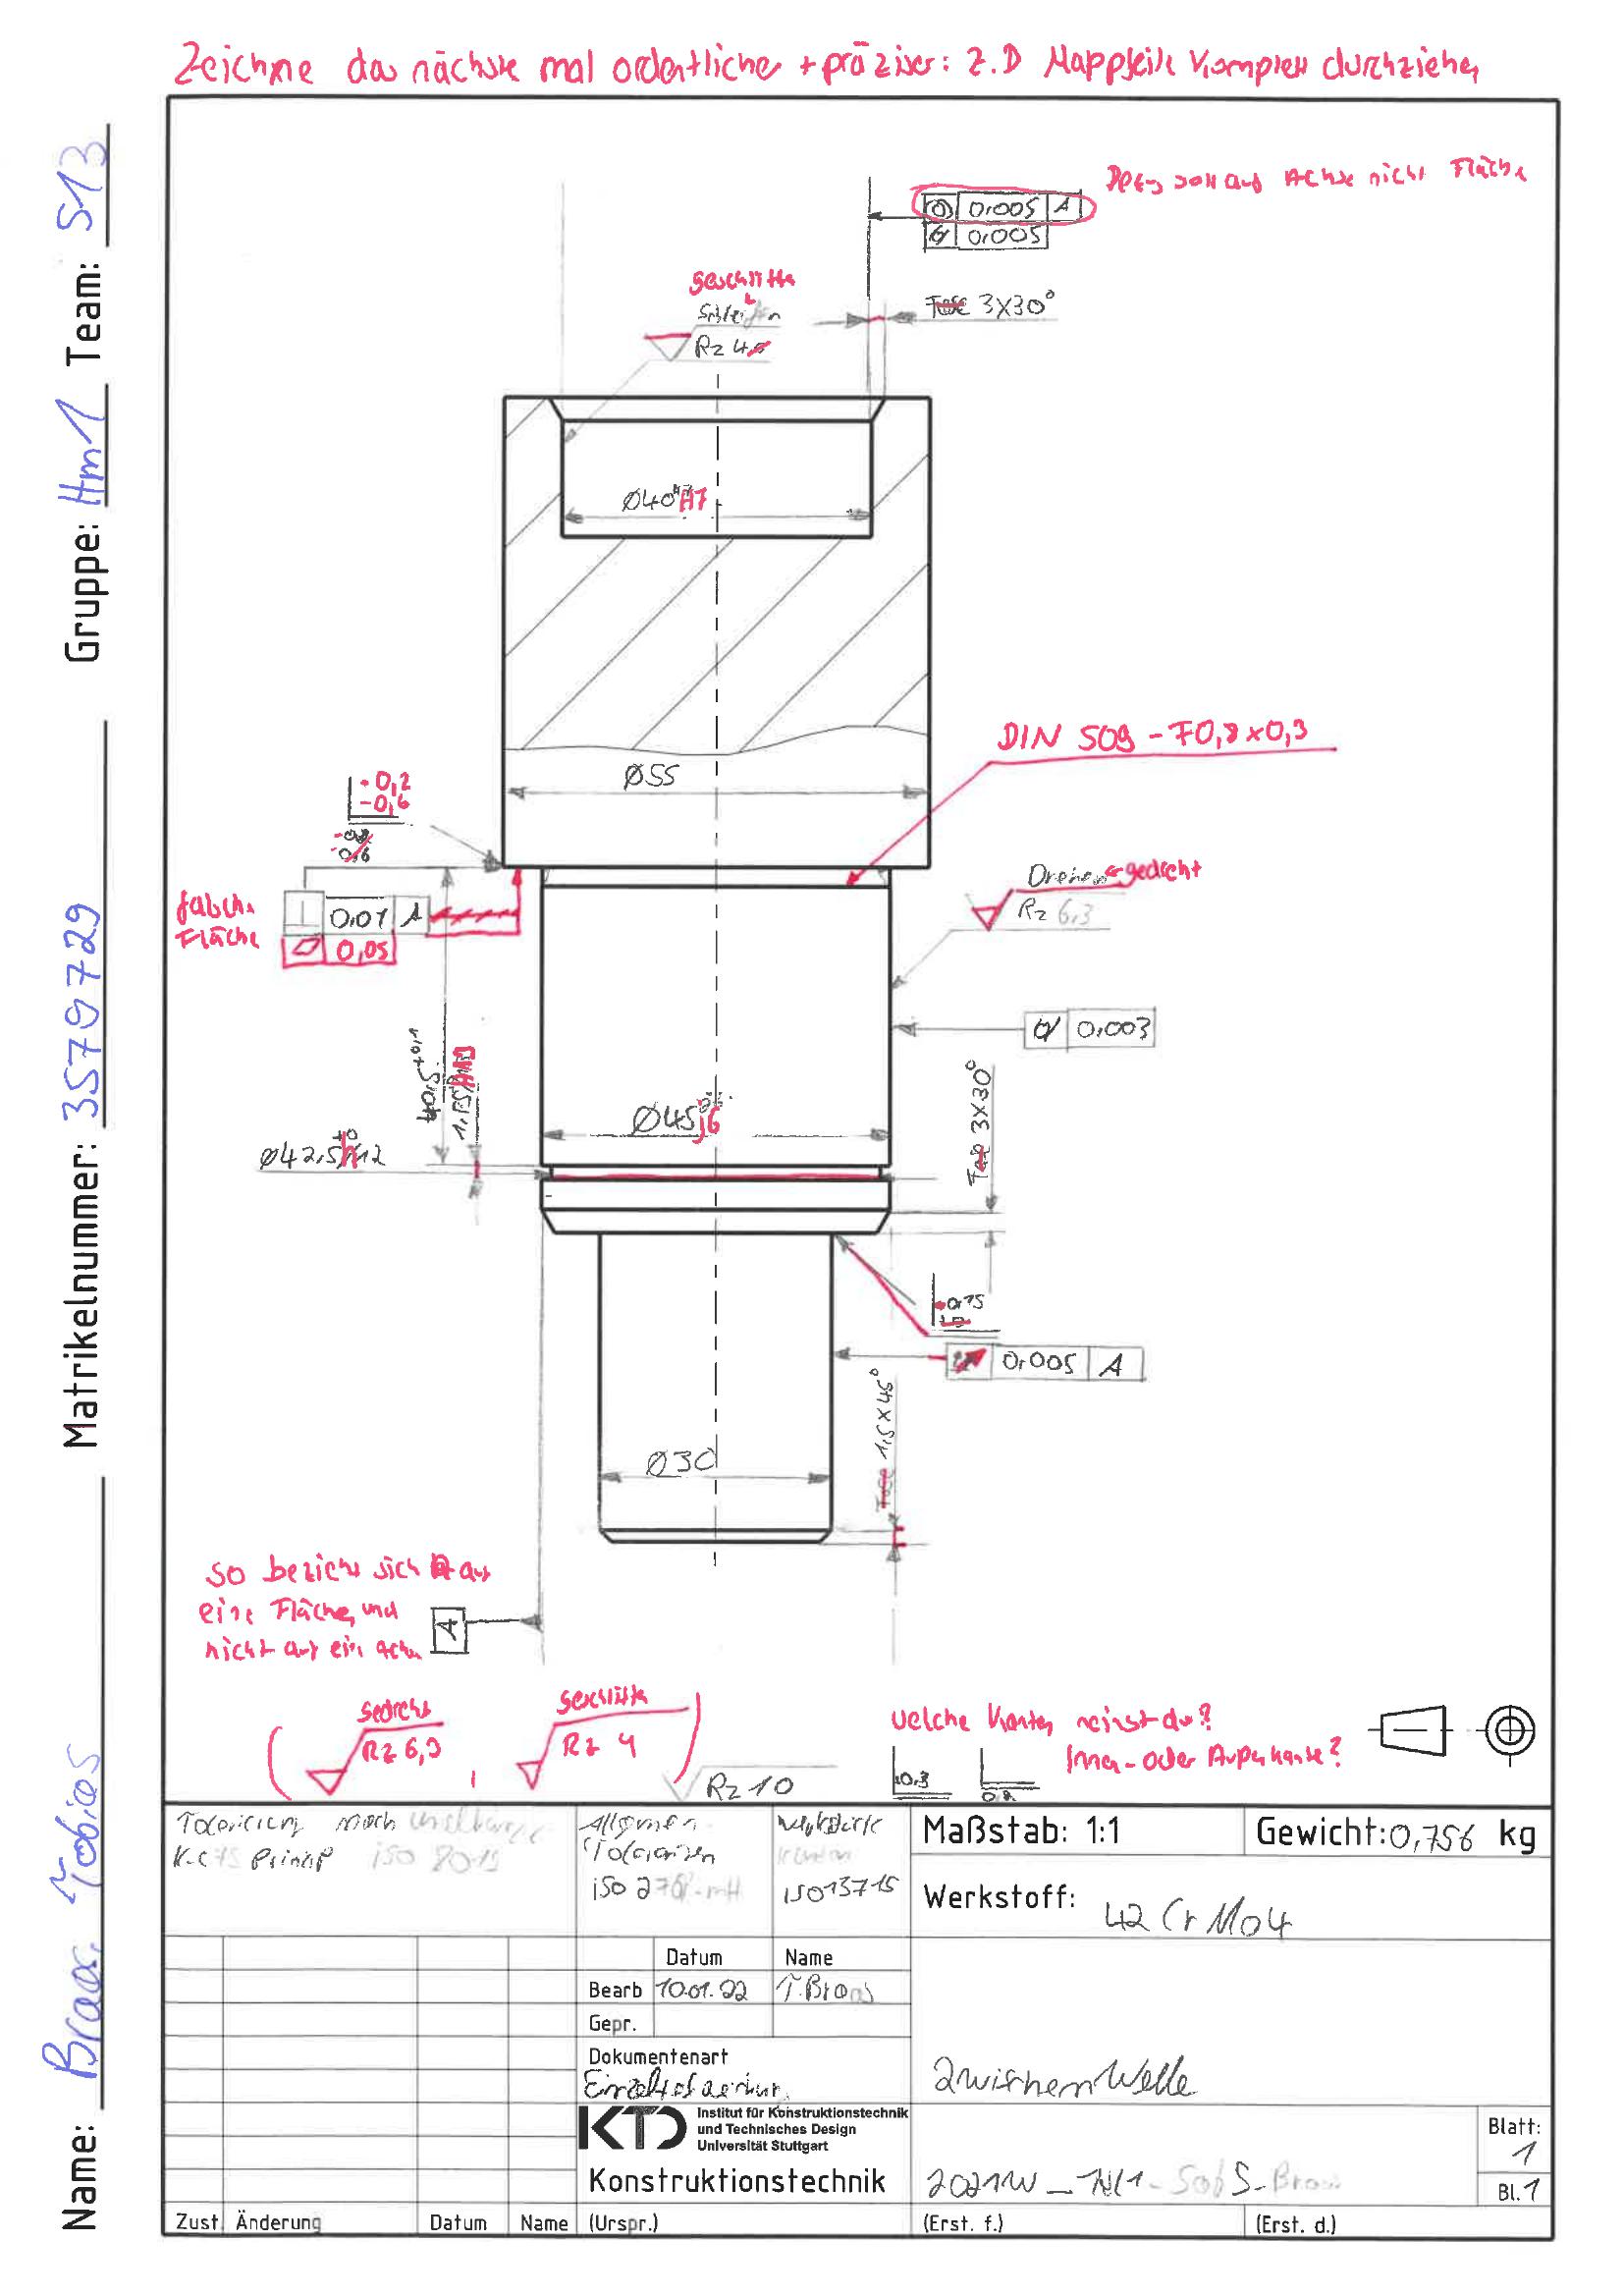 Zeichne das nächste mal ordentlicher + präziser: z.B Maßpfeile komplett durchziehen
Name: Braas, Tobias Matrikelnummer: 3579729 Gruppe: Hm1 Team: S13
Bezug soll auf Achse nicht Fläche
◎ 0.005 A
0.005
geschliffen
Schleifen
Rz 4
Fase 3X30°
Ø40 H7
DIN 509 - F0,8x0,3
Ø55
-0,2
-0,6
falsche
Fläche
⊥ 0,01 A
0,05
Drehen gedreht
Rz 6,3
0,003
40,5 +0,1
H13
Ø45 j6
Ø42,5 h12
Fase 3X30°
0,005 A
Fase 1,5X45°
Ø30
so bezieht sich A auf
eine Fläche, und
nicht auf ein Achse
A
( gedreht Rz 6,3 , geschliffen Rz 4 )
Rz 10
welche Kanten meinst du?
Innen- oder Außenkante?
-0,3
Tolerierung nach
Prinzip ISO 8015
Allgemein
Toleranzen
ISO 2768-mH
Werkstück
kanten
ISO13715
Maßstab: 1:1
Gewicht: 0,756 kg
Werkstoff: 42CrMo4
Datum Name
Bearb 10.01.22 T.Braas
Gepr.
Dokumentenart
Zwischenwelle
KTD Institut für Konstruktionstechnik
und Technisches Design
Universität Stuttgart
Konstruktionstechnik
Blatt:
1
Bl. 1
Zust. Änderung Datum Name (Urspr.) (Erst. f.) (Erst. d.)